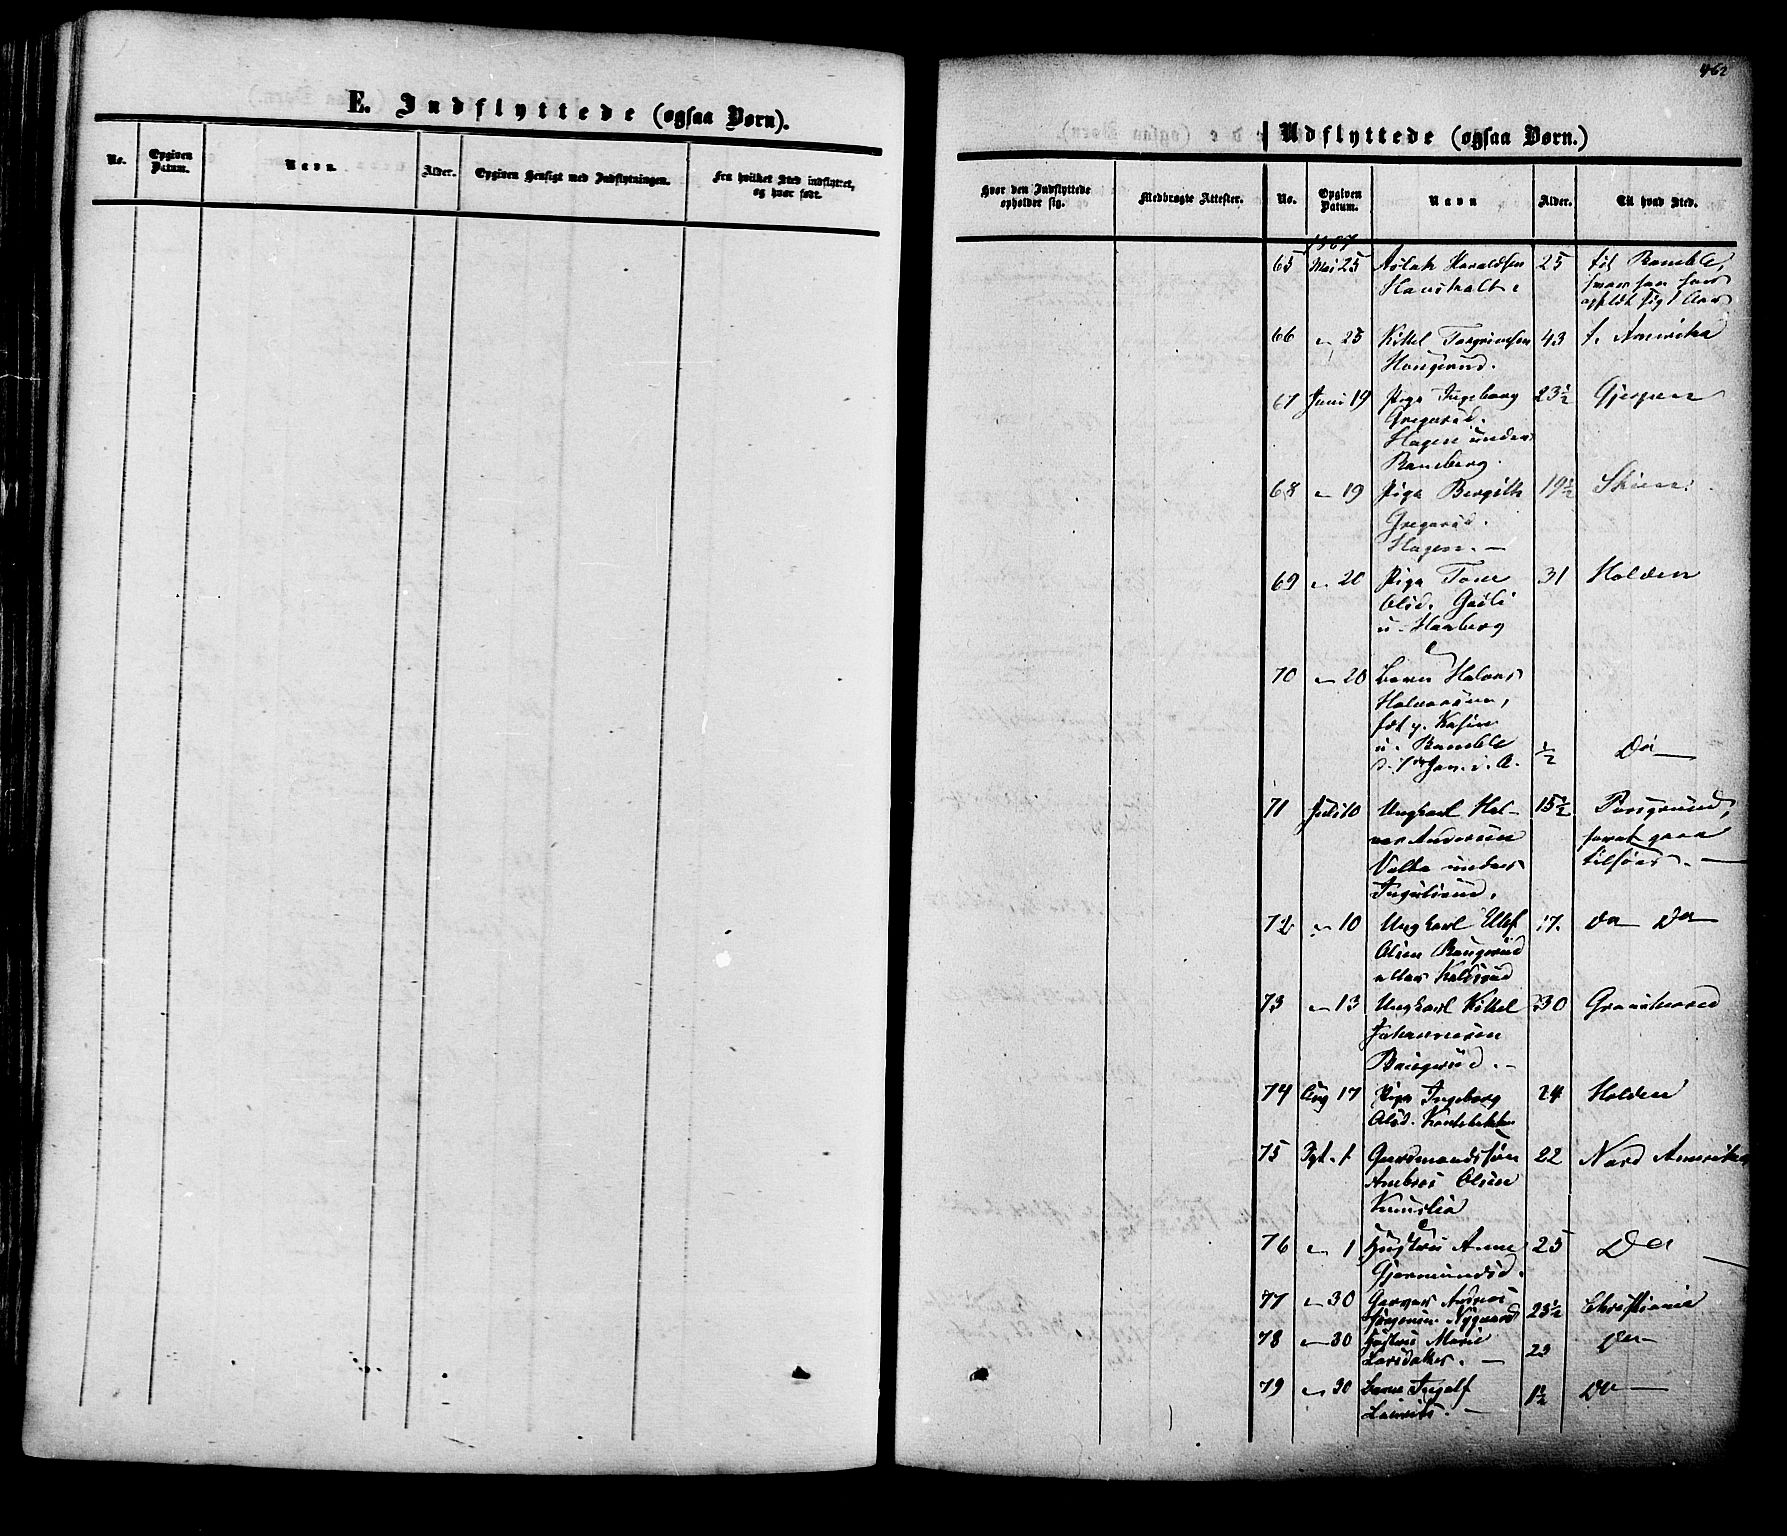 E. Indflyttede (ogsaa Børn).
No.
Opgiven Datum.
Navn.
Alder.
Opgiven Hensigt med Indflytningen.
Fra hvilket Sted indflyttet, og hvor født.
462
Udflyttede (ogsaa Børn.)
Hvor den Indflyttede opholder sig.
Medbragte Attester.
No.
Opgiven Datum.
Navn
Alder.
Til hvad Sted.
1867
65 Mai 25 Aslak Haraldsen 25 til Bamble,
hvor han har
opholdt sig 1 Aar
66 " 25 Kittel Torgrimsen 43 t. Amerika
Haugerud.
67 Juni 19 Pige Ingeborg 23½ Gjerpen
Gregersd.
Hagen under
Ramberg.
68 " 19 Pige Bergith 19½ Skien.
Gregersd.
Hagen. —
69 " 20 Pige Tone 31 Holden
Olsd.
u.
70 " 20 Barn Halvor
Halvorsen,
u. Bamble ½ Do —
d. 1ste Jan. d. A.
71 Juli 10 Ungkarl Hal- 15½ Porsgrund,
vor Andersen for at gaa
under tilsøes. —
72 " 10 Ungkarl Ellef 17. Do Do
Olsen
73 " 13 Ungkarl Kittel 30 Gransherred
Johannesen
74 Aug 17 Pige Ingeborg 24 Holden
Olsd.
75 Spt. 1 Gaardmandssøn 22 Nord Amerika
Ambros Olsen
76 " 1 Hustru Anne 25 Do —
Gjermundsd.
77 " 30 Garver Andreas 25½ Christiania
Nygaard
78 " 30 Hustru Marie 23 Do —
Larsdatter. —
79 " 30 Barn Ingolf 1½ Do —
Lauritz. —